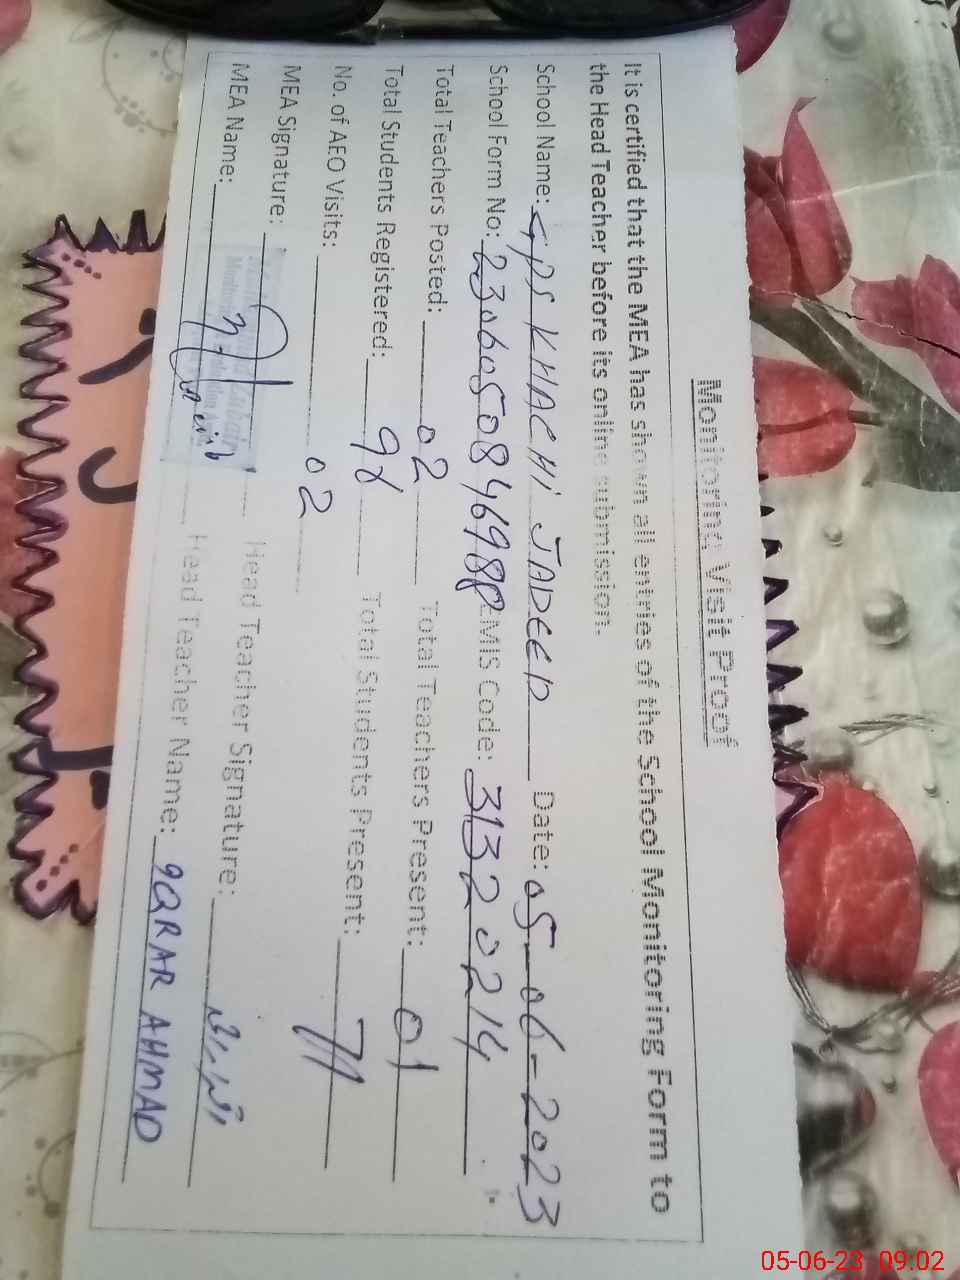 Monitoring Visit Proof
It is certified that the MEA has shown all entries of the School Monitoring Form to
the Head Teacher before its online submission.
School Name: GPS KHACHI JADEED Date: 05-06-2023
School Form No: 2306050846988 EMIS Code: 31320214
Total Teachers Posted: 02 Total Teachers Present: 01
Total Students Registered: 98 Total Students Present: 71
No. of AEO Visits: 02
MEA Signature: Head Teacher Signature:
MEA Name: Head Teacher Name: IQRAR AHMAD
05-06-23 09:02